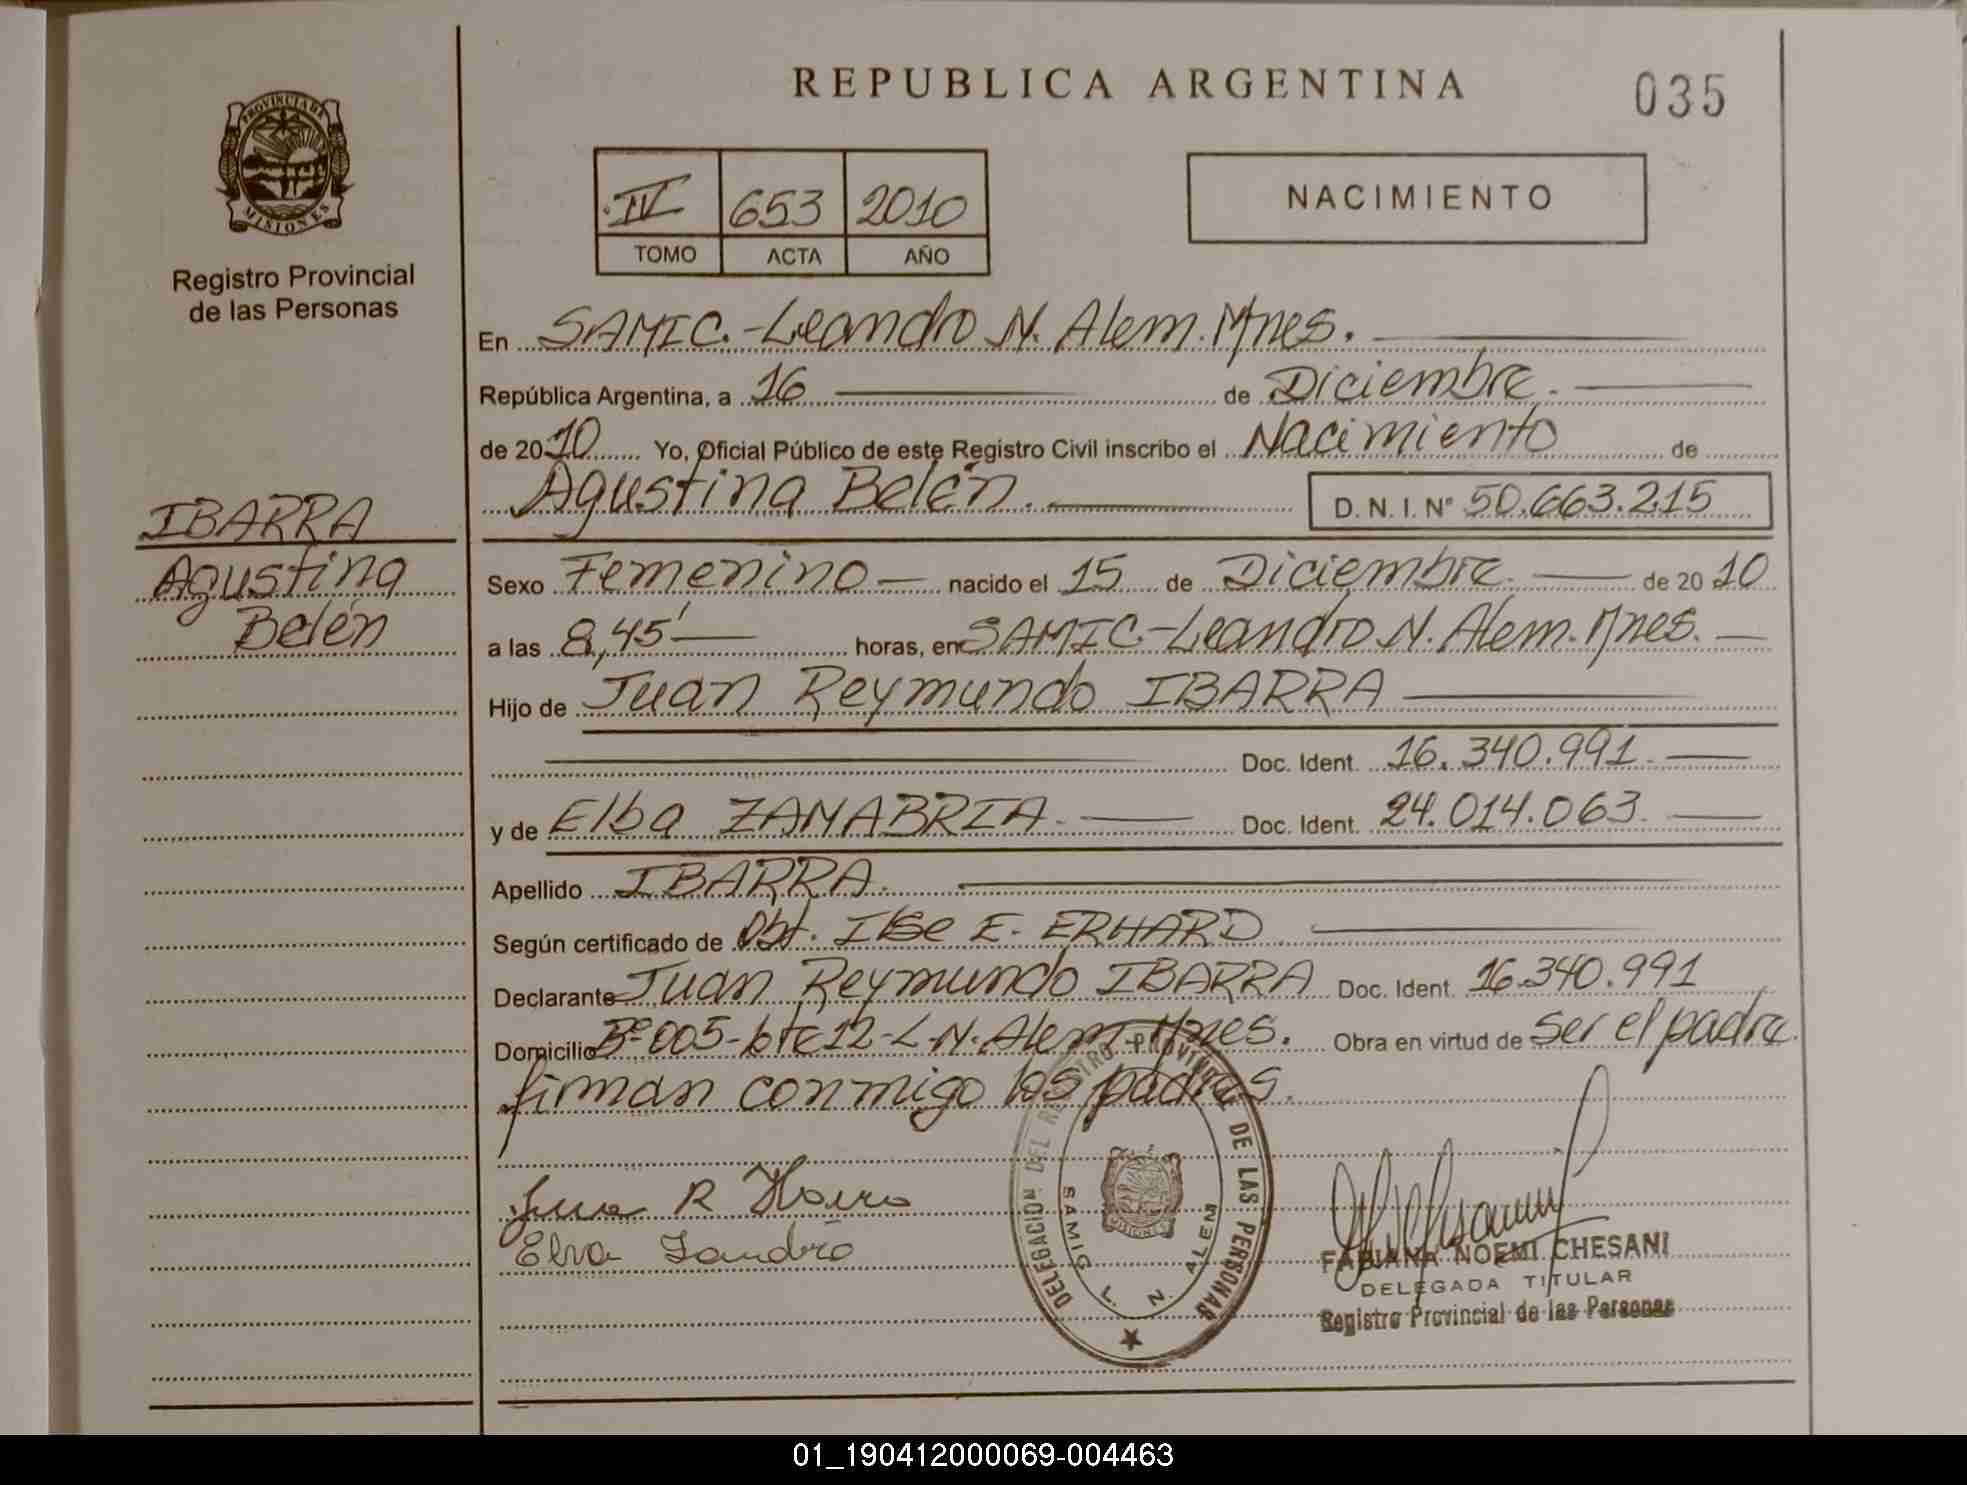 REPUBLICA ARGENTINA
035
PROVINCIA DE
MISIONES
Registro Provincial
de las Personas
IV 653 2010
TOMO ACTA AÑO
NACIMIENTO
En SAMIC.-Leandro N. Alem. Mnes.
República Argentina, a 16 de Diciembre.
de 2010 Yo, Oficial Público de este Registro Civil inscribo el Nacimiento de
Agustina Belén. D. N. I. Nº 50.663.215
IBARRA
Agustina
Belén
Sexo Femenino nacido el 15 de Diciembre. de 2010
a las 8,45' horas, en SAMIC.-Leandro N. Alem. Mnes.
Hijo de Juan Reymundo IBARRA
Doc. Ident. 16.340.991.
y de Elba ZANABRIA. Doc. Ident. 24.014.063.
Apellido IBARRA.
Según certificado de Obt. Ilse E. ERHARD
Declarante Juan Reymundo IBARRA Doc. Ident. 16.340.991
Domicilio Bº 005-bte 12-L.N. Alem. Mnes. Obra en virtud de ser el padre.
firman conmigo los padres.
DELEGACION DEL REGISTRO PROVINCIAL DE LAS PERSONAS
SAMIC L. N. ALEM
MISIONES
FABIANA NOEMI CHESANI
DELEGADA TITULAR
Registro Provincial de las Personas
01_190412000069-004463